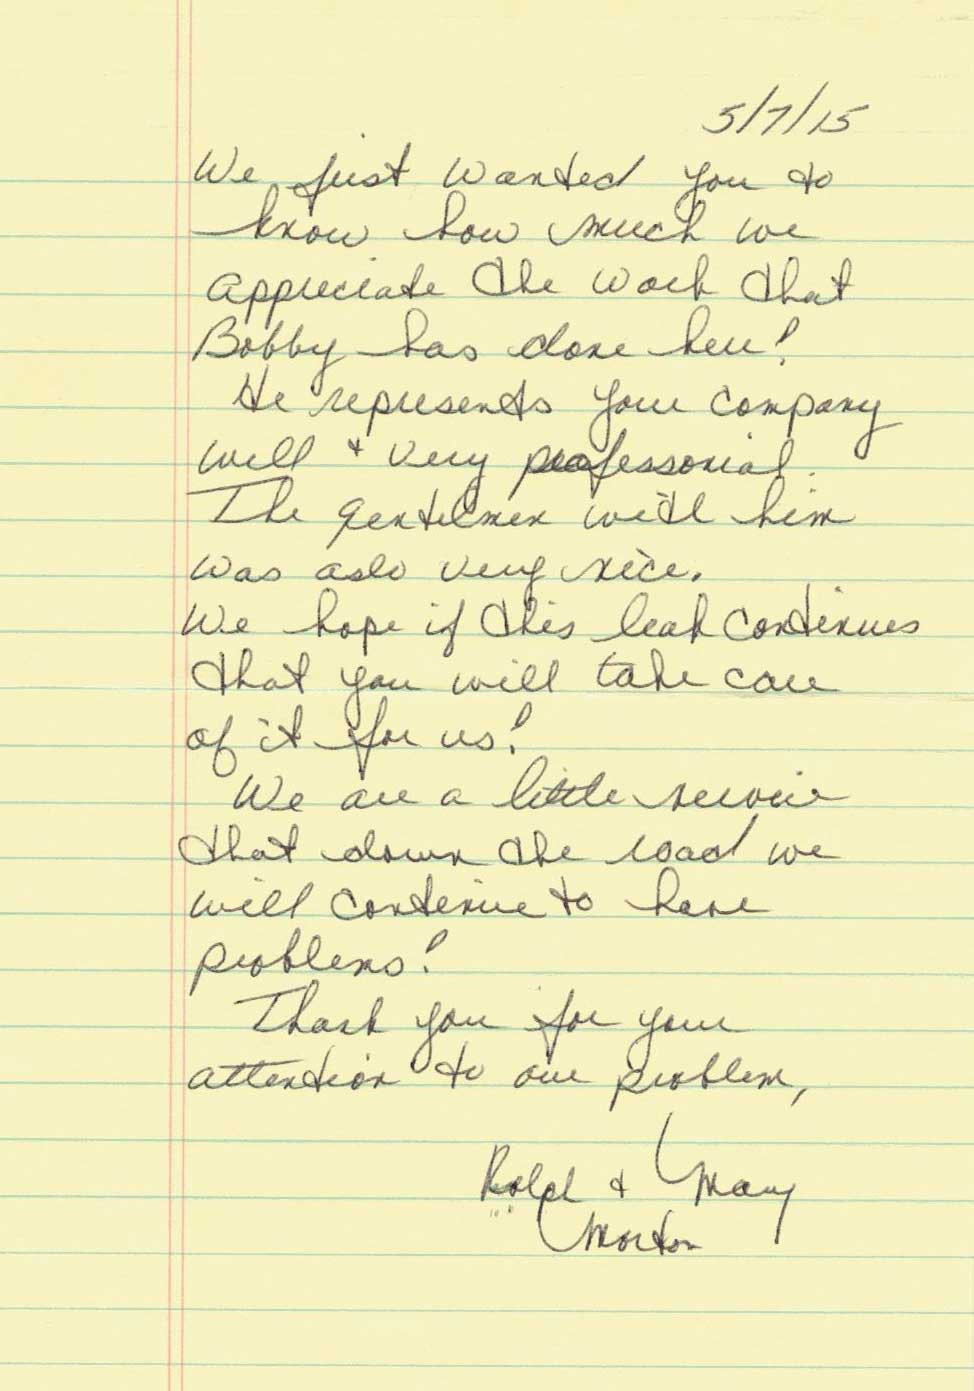 5/7/15
We just wanted you to
know how much we
appreciate the work that
Bobby has done here!
He represents your company
well + very professonial.
The gentelmen with him
was aslo very nice.
We hope if this leak continues
that you will take care
of it for us!
We are a little
that down the road we
will continue to have
problems!
Thank you for your
attention to our problem,
Ralph + Mary
Morton